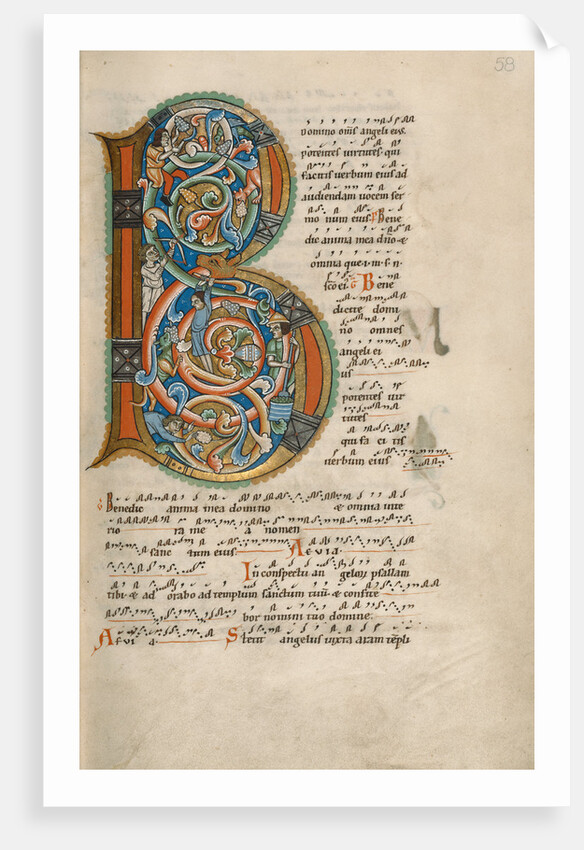 58
B
Domino om̅s angeli eius.
potentes virtutes. qui
facitis verbum eius ad
audiendam vocem ser
mo num eius. Ps Bene
dic anima mea dn̅o &
omnia que. i. m. s. n.
sc̅o ei. G Bene
dicite domi
no omnes
angeli ei
us
potentes vir
tutes
qui fa ci tis
verbum eius
V Benedic anima mea domino & omnia inte
rio ra me a nomen
sanc tum eius. Aevia.
In conspectu an gelor̅ psallam
tibi. & ad orabo ad templum sanctum tuu̅. & confite
bor nomini tuo domine.
Aevi a. Stetit angelus iuxta aram te̅pli